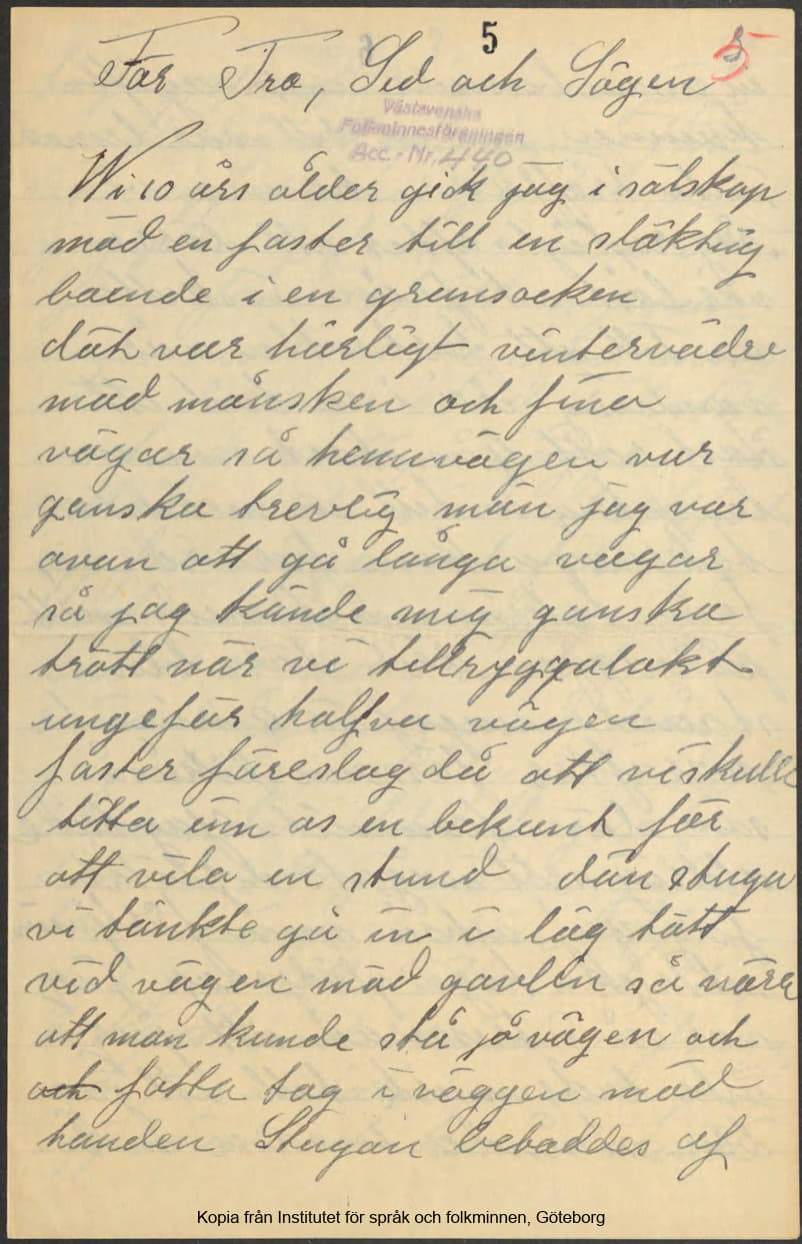 5
5
För Tro, Sed och Sägen
Västsvenska
Folkminnesföreningen
Acc.-Nr. 440
Wi 10 års ålder gick jag i sälskap
mäd en faster till en släkting
boende i en grensocken
dät var härligt vinterväder
mäd månsken och fina
vägar så hemvägen var
ganska trevlig män jag var
ovan att gå långa vägar
så jag kände mig ganska
trött när vi tillryggalakt
ungefär halfva vägen
faster föreslog då att vi skulle
titta inn os en bekant för
att vila en stund dän stuga
vi tänkte gå in i låg tätt
vid vägen mäd gavlen så nära
att man kunde stå på vägen och
och fatta tag i väggen mäd
handen Stugan beboddes af
Kopia från Institutet för språk och folkminnen, Göteborg